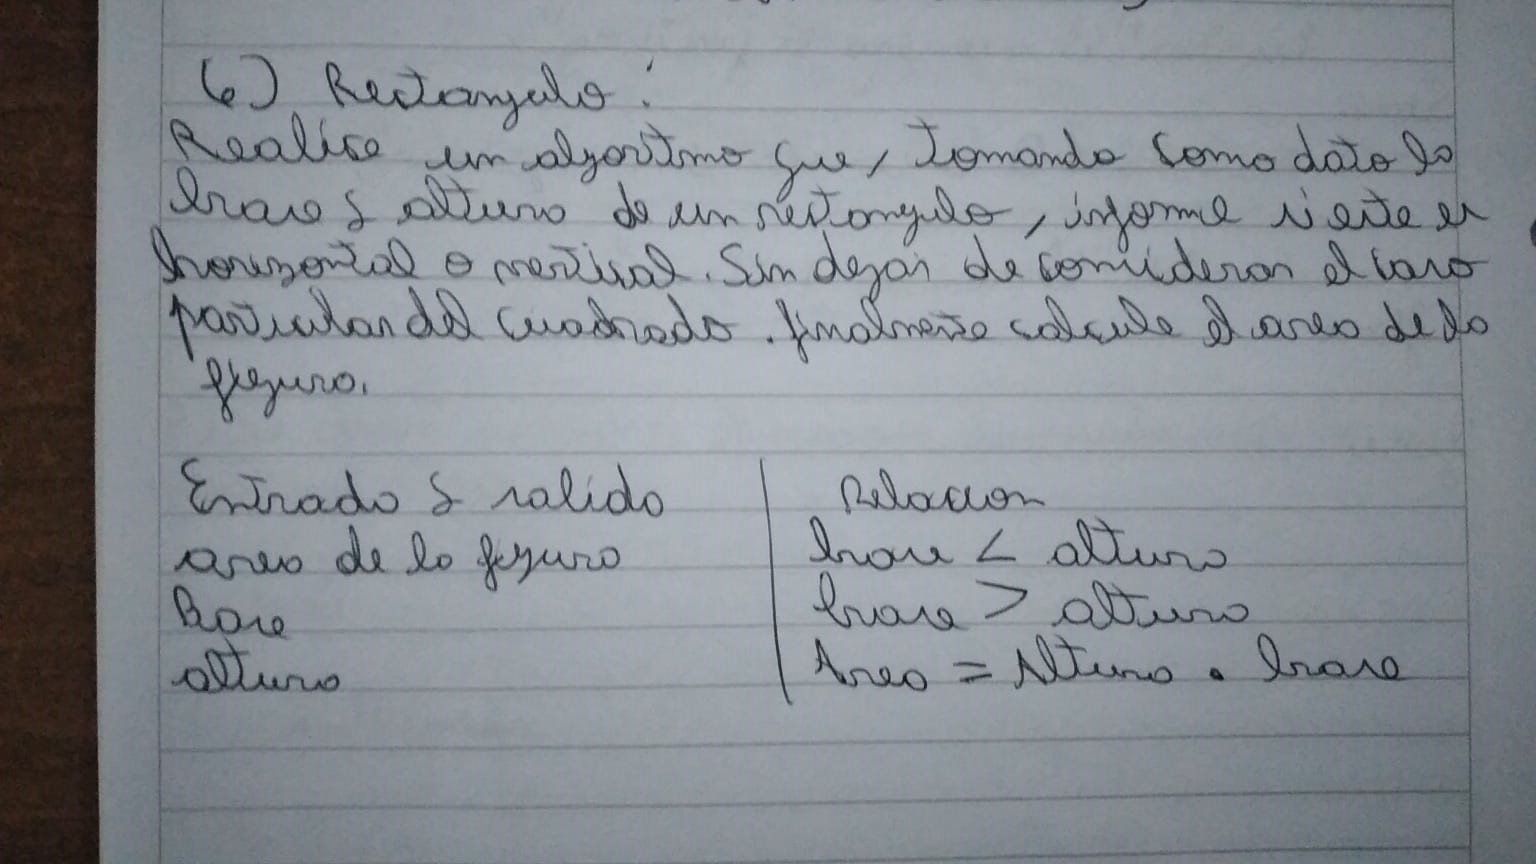 6) Rectangulo:
Realice un algoritmo que, tomando como dato la
base y altura de un rectangulo, informe si este es
horizontal o vertical. Sin dejar de considerar el caso
particular del cuadrado. finalmente calcule el area de la
figura.
Entrada y salida
Relacion
area de la figura
base < altura
Base
base > altura
altura
Area = Altura . base